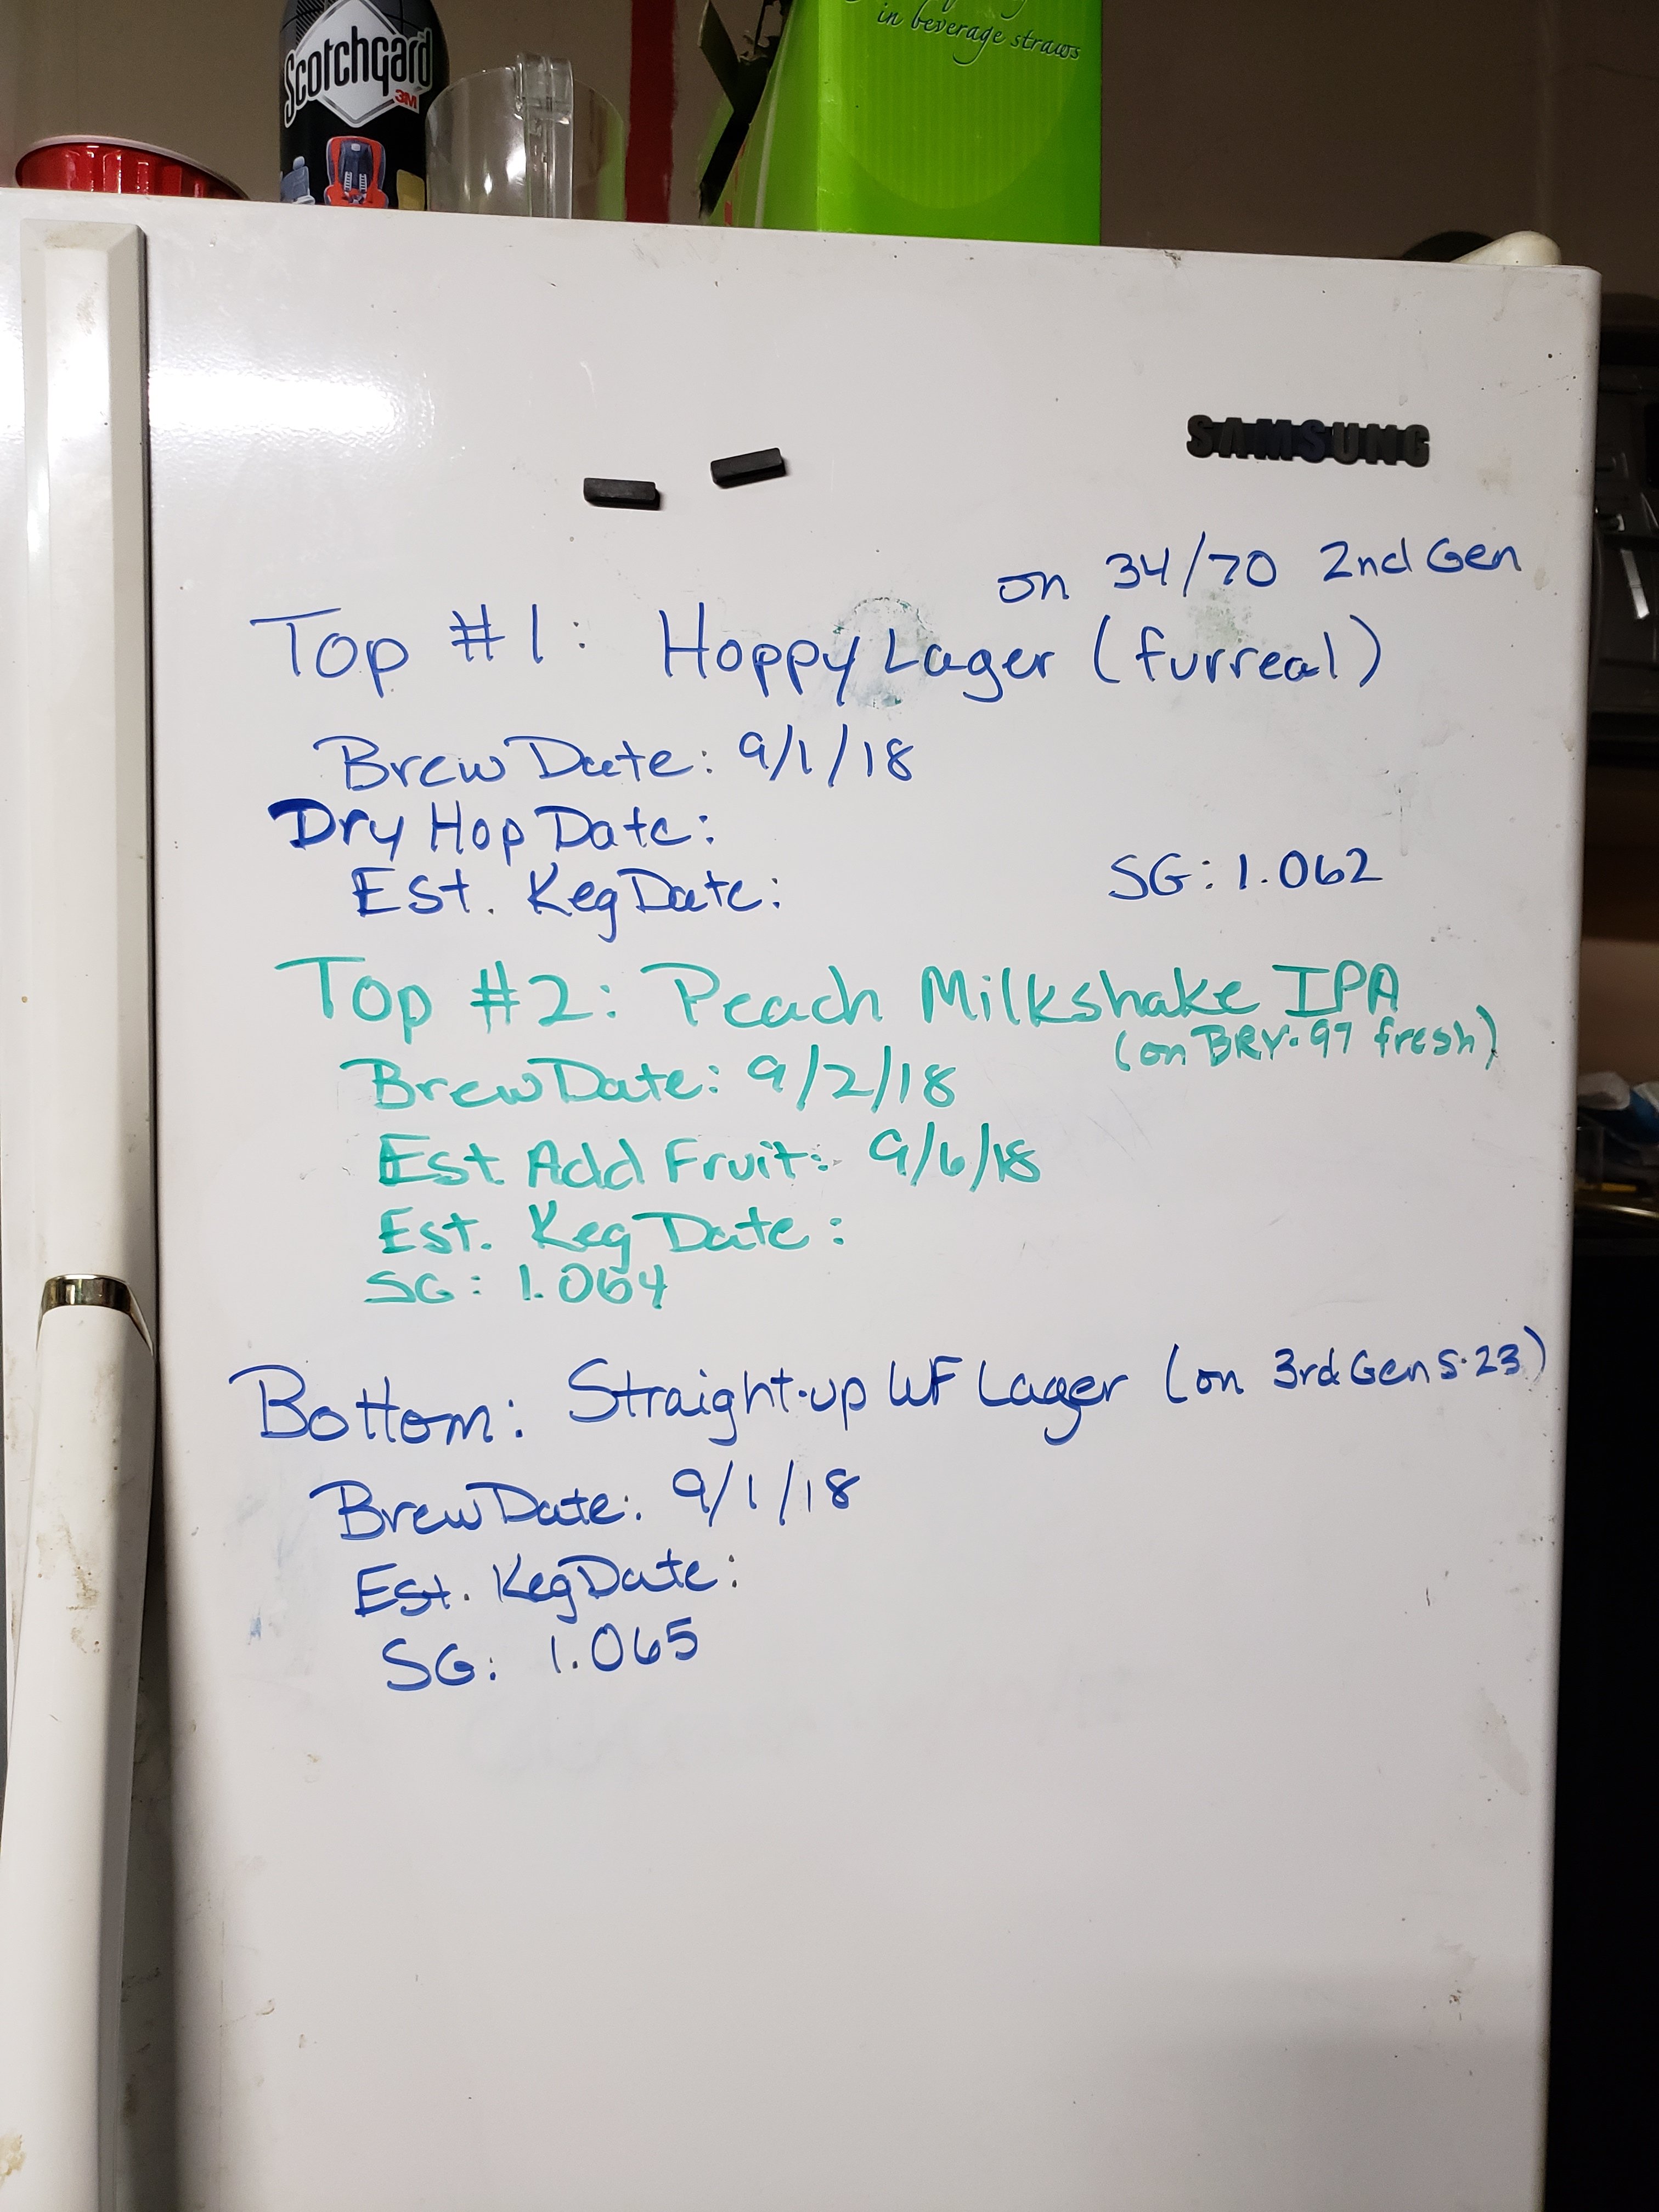 in beverage straws
Scotchgard
3M
SAMSUNG
on 34/70 2nd Gen
Top #1: Hoppy Lager (furreal)
Brew Date: 9/1/18
Dry Hop Date:
Est. Keg Date:
SG: 1.062
Top #2: Peach Milkshake IPA
(on BRY-97 fresh)
Brew Date: 9/2/18
Est Add Fruit: 9/6/18
Est. Keg Date:
SG: 1.064
Bottom: Straight-up WF Lager (on 3rd Gen S-23)
Brew Date: 9/1/18
Est. Keg Date:
SG: 1.065